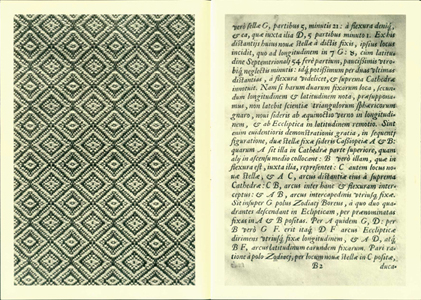 verò stellæ G, partibus 5, minutis 21: à flexura deniq́;
& ea, quæ iuxta ilia D, 5 partibus minuto 1. Ex his
distantijs huius nouæ stellæ à dictis fixis, ipsius locus
incidit, quò ad longitudinem in 7 G: 8, cum latitu-
dine Septentrionali 54 ferè partium, paucissimis vtro-
biq́; neglectis minutis: idq́; potissimum per duas vltimas
distantias, à flexura videlicet, & suprema Cathedræ
inuenit. Nam si harum duarum fixarum loca, secun-
dum longitudinem & latitudinem nota, præsuppona-
mus, non latebit scientiæ triangulorum sphæricorum
gnaro, noui sideris ab æquinoctio verno in longitudi-
nem, & ab Ecliptica in latitudinem remotio. Sint
enim euidentioris demonstrationis gratia, in sequenti
figuratione, duæ stellæ fixæ sideris Cassiopeiæ A & B:
quarum A sit illa in Cathedræ parte superiore, quam
alij in ascensu medio collocant: B verò illam, quæ in
flexura est, iuxta ilia, repræsentet: C autem locus no-
uæ stellæ, & A C, arcus distantiæ eius à suprema
Cathedræ: C B, arcus inter hanc & flexuram inter-
ceptus: & A B, arcus intercapedinis vtriusq́; fixæ.
Sit insuper G polus Zodiaci Boreus, à quo duo qua-
drantes descendant in Eclipticam, per prænominatas
fixas in A & B positas. Per A quidem G, D: per
B verò G F. erit itaq́; D F arcus Eclipticæ
dirimens vtriusq́; fixæ longitudinem, & A D, atq́;
B F, arcus latitudinum earundem fixarum. Pari ra-
tione à polo Zodiaci, per locum nouæ stellæ in C positæ,
B2 duca-